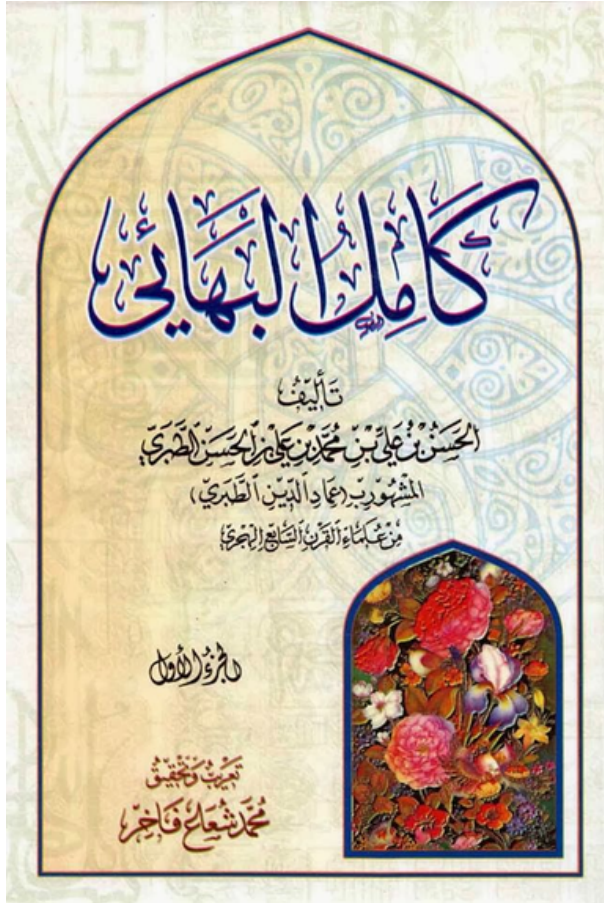 كامل البهائي
تأليف
الحسن بن علي بن محمد بن علي بن الحسن الطبري
المشهور بـ (عماد الدين الطبري)
من علماء القرن السابع الهجري
الجزء الأول
تعريب وتحقيق
محمد شعاع فاخر